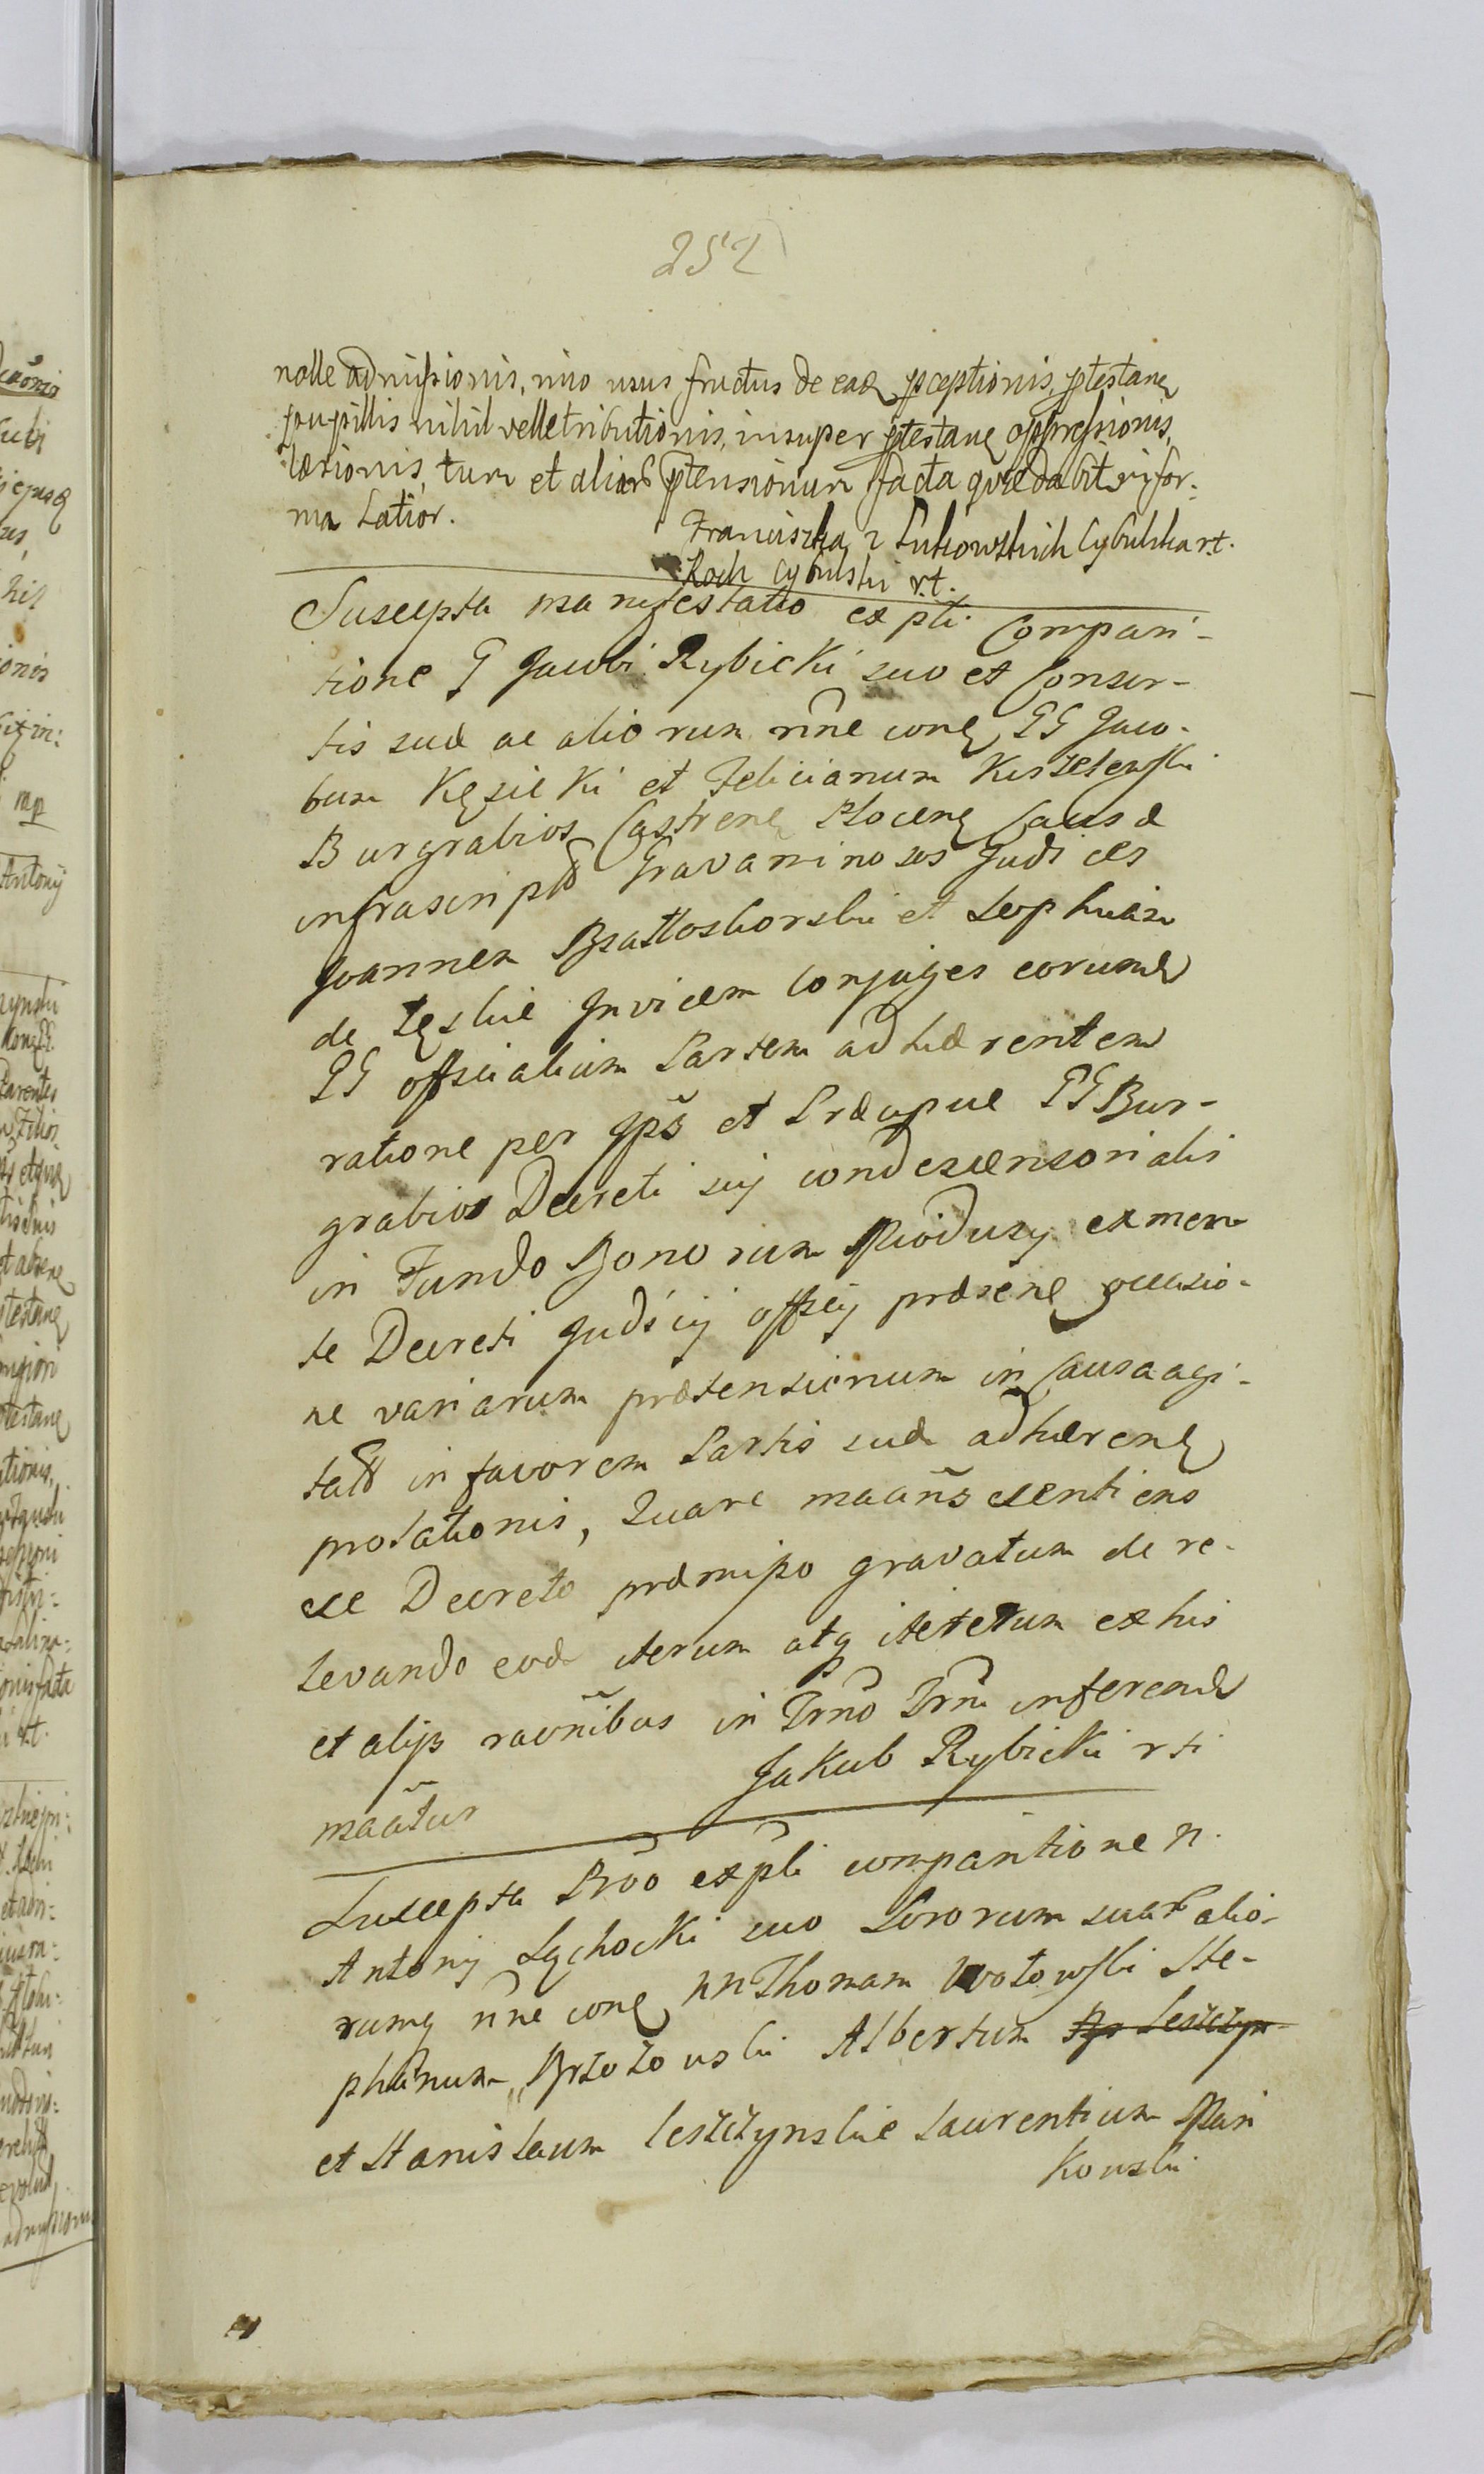 252
nolle admissionis, imo usus fructus de eadę pceptionis, ptestanę
pupillis nihil velle tributionis, insuper ptestanę oppressionis,
læsionis, tum et aliar ptensionum facta quæ dabitr in for:
ma Latior.
Franciszka z Lukowskich Cybulska rt.
Roch Cybulski r.t.
Suscepta manifestatio ex pti Compari-
tione G Jacobi Rybicki suo et Consor-
tis suæ ac aliorum nñe conę GG Jaco-
bum Kęsicki et Felicianum Kisielewski
Burgrabios Castrenę Plocenę Causæ
infrascriptæ Gravaminosos Judices
Joannem Białoskorski et Sophiam
de Zęskie Invicem Conjuges eorumę
GG officialium Partem adhærentem
ratione per Ips̃ et Præcipue GG Bur-
grabios Decreti sui condescensorialis
in Fundo Bonorum Rioduzy ex men-
te Decreti Judicij officij præsenę occasio-
ne variarum prætensionum in Causa agi-
tatæ in favorem Partis suæ adhærenę
prolationis, Quare maañs sentiens
se Decreto præmisso gravatum de re-
levando eod iterum atq iteterum ex his
et alijs raõnibus in Trnõ Trni inferend
maãtur
Jakub Rybicki rti
Suscepta Prõo ex pti comparitione n.
Antonij Lychocki suo Sororum suar alio-
rumq nñe conę nn Thomam Wotowski Ste-
phanum Brzozowski Albertum
et Stanislaum Leszczynskie Laurentium Pan
kowski